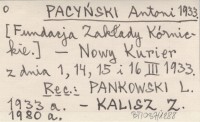 o PACYŃSKI Antoni 1933.
[Fundacja Zakłady Kórnic-
kie.] — Nowy Kurier
z dnia 1, 14, 15 i 16 III 1933.
Rec.: PANKOWSKI L.
1933 a. - KALISZ Z.
1980 a.